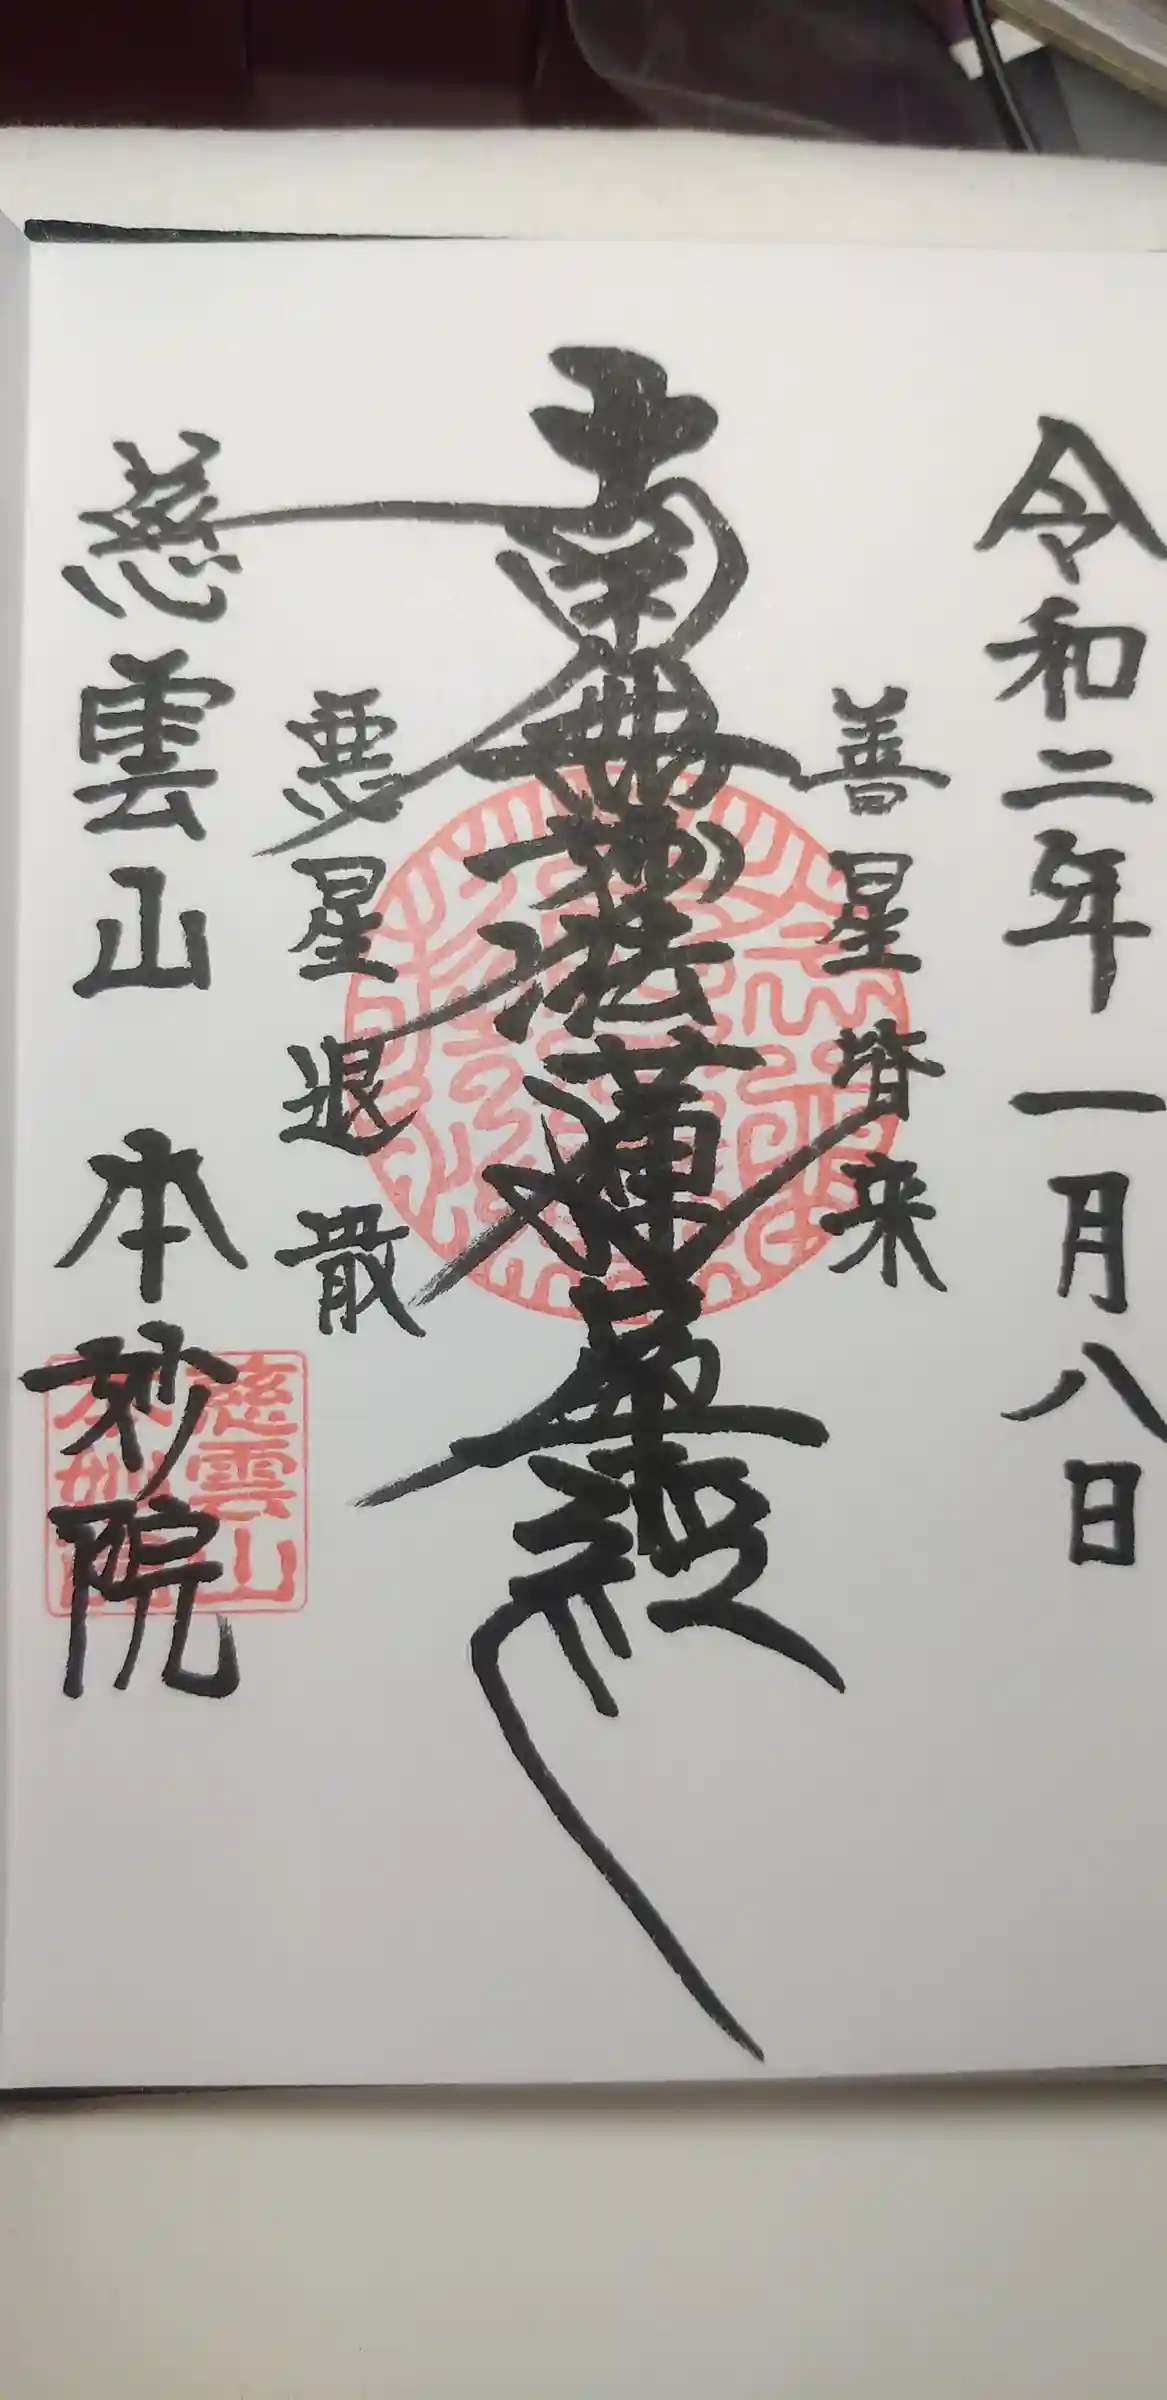 令和二年一月八日
善星皆来
南無妙法蓮華経
悪星退散
慈雲山 本妙院
慈雲山
本妙院